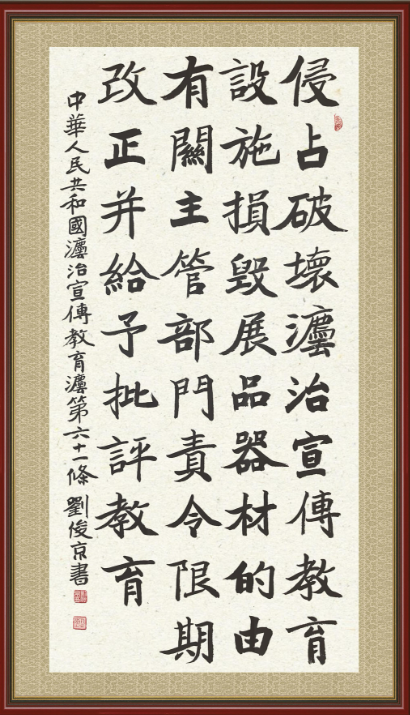 侵占破壞灋治宣傳教育
設施損毀展品器材的由
有關主管部門責令限期
改正并給予批評教育
中華人民共和國灋治宣傳教育灋第六十一條 劉俊京書